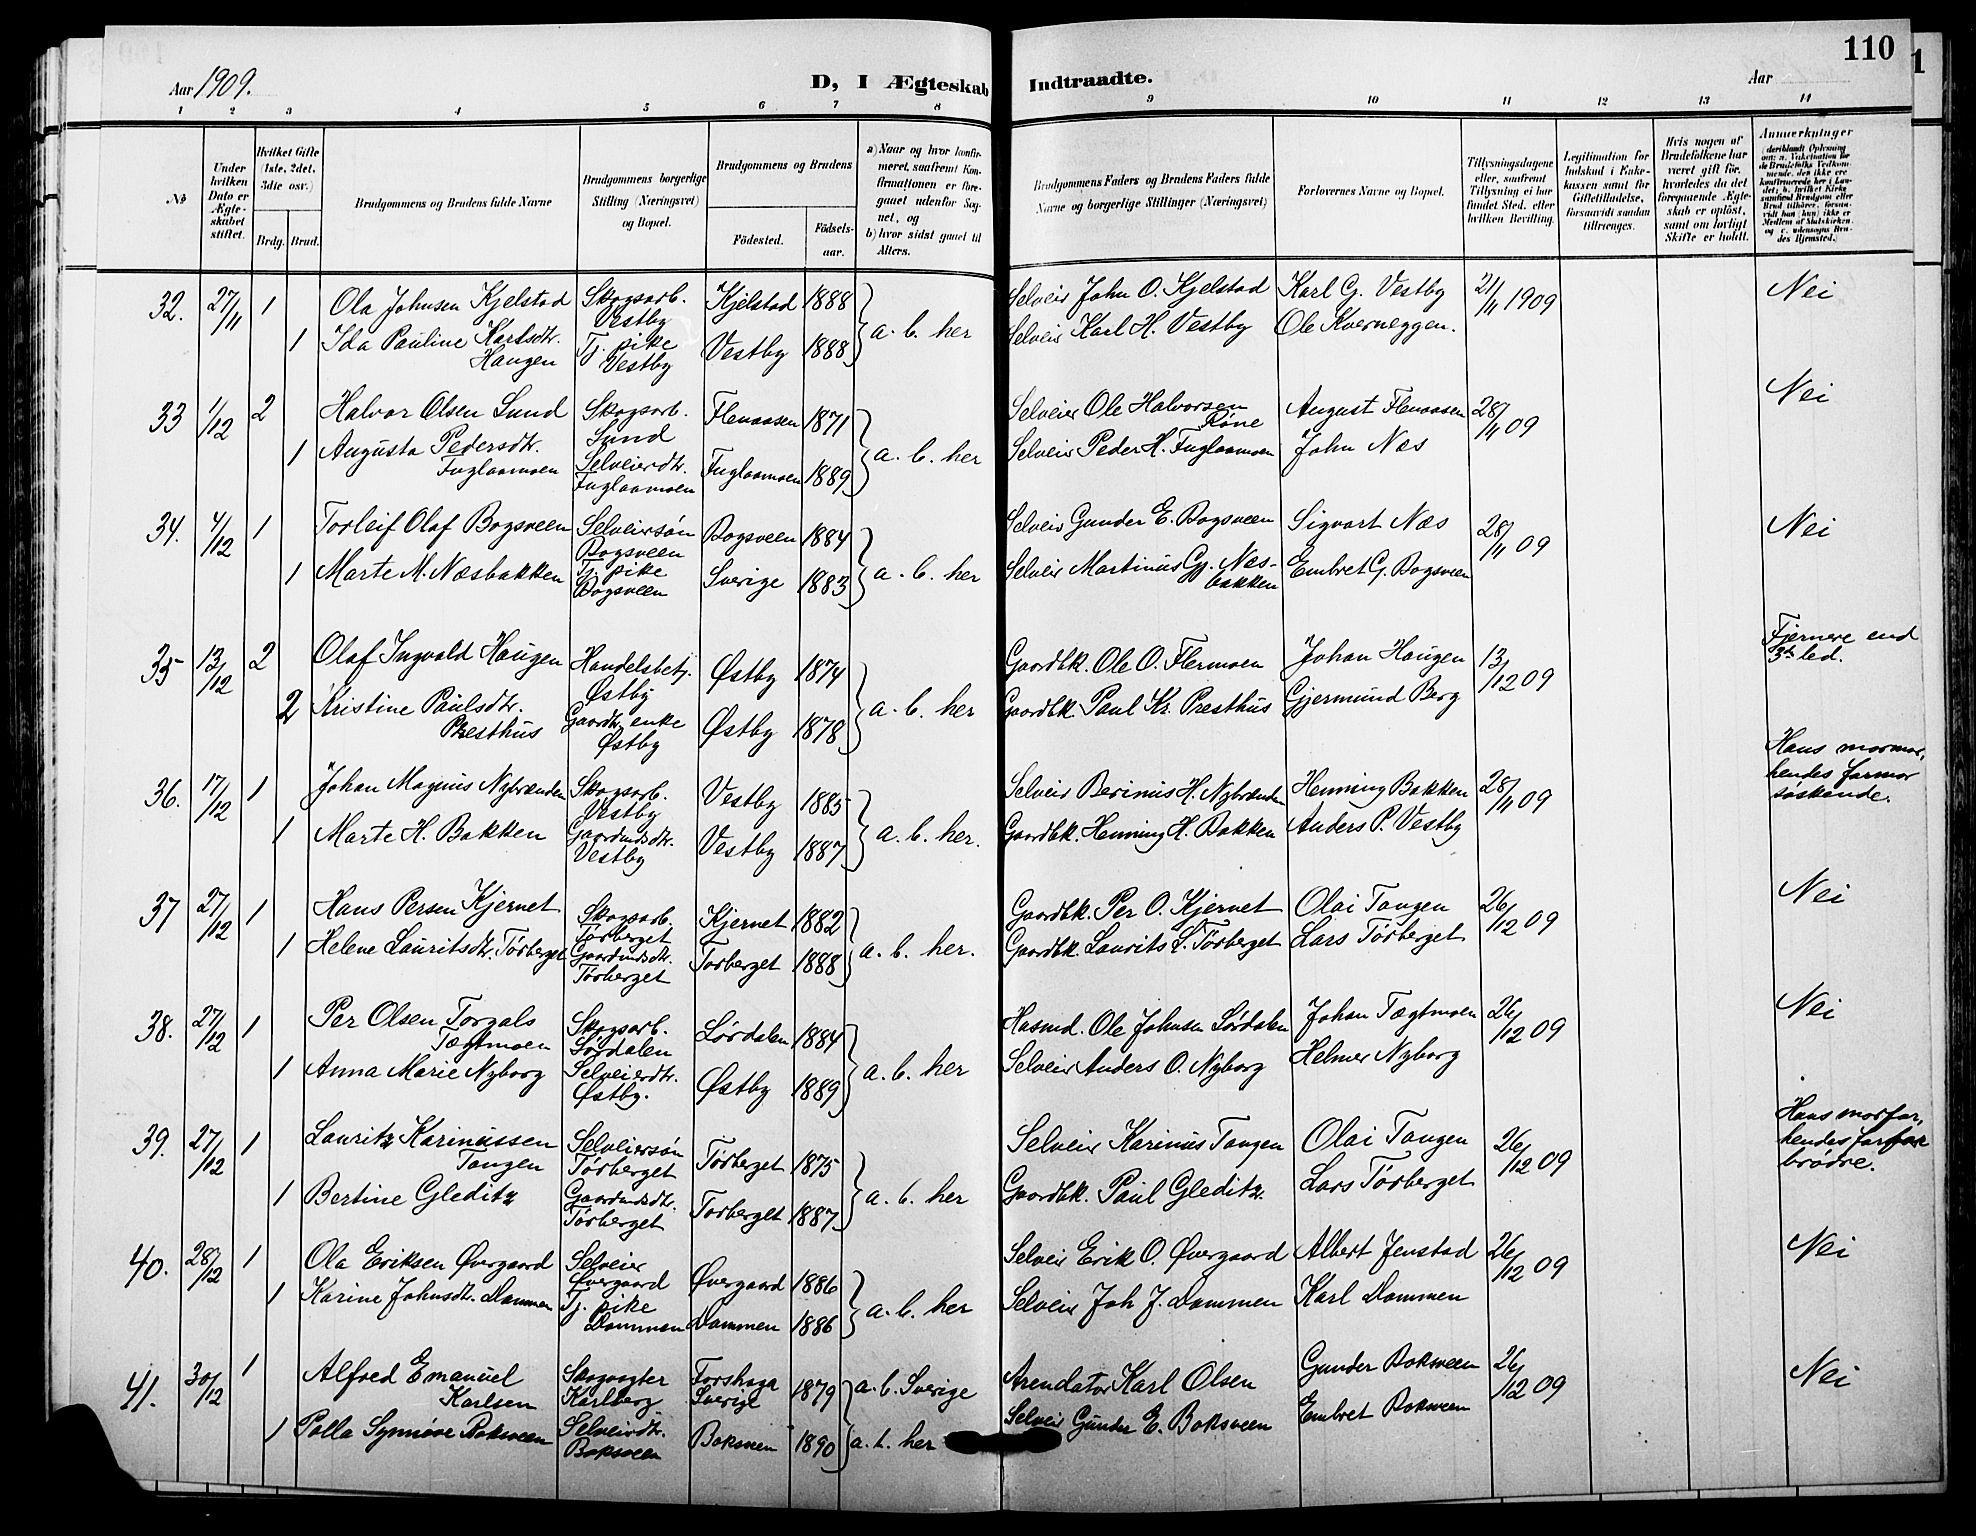 110
Aar 1909.
D, I Ægteskab Indtraadte.
Aar
1 2 3 4 5 6 7 8 9 10 11 12 13 14
No
Under hvilken Dato er Ægteskabet stiftet.
Hvilket Gifte (1ste, 2det, 3die osv.)
Brdg. Brud.
Brudgommens og Brudens fulde Navne
Brudgommens borgerlige Stilling (Næringsvei) og Bopæl.
Brudgommens og Brudens
Födested.
Födsels-aar.
a) Naar og hvor konfirmeret, saafremt Konfirmationen er foregaaet udenfor Sognet, og
b) hvor sidst gaaet til Alters.
Brudgommens Faders og Brudens Faders fulde Navne og borgerlige Stillinger (Næringsvei)
Forlovernes Navne og Bopæl.
Tillysningsdagene eller, saafremt Tillysning ei har fundet Sted, efter hvilken Bevilling.
Legitimation for Indskud i Enkekassen samt for Giftetilladelse, forsaavidt saadan tiltrænges.
Hvis nogen af Brudefolkene har været gift för, hvorledes da det foregaaende Ægteskab er oplöst, samt om lovligt Skifte er holdt.
Anmærkninger
32. 27/11 1 Ola Johnsen Kjelstad Skogsarb. Vestby Kjelstad 1888 a. b. her Selveier John O. Kjelstad Karl G. Vestby 21/11 1909 Nei
1 Ida Pauline Karlsdtr. Haugen Tj. pike Vestby Vestby 1888 Selveier Karl H. Vestby Ole Kverneggen.
33 1/12 2 Halvor Olsen Lund Skogsarb. Lund Flenaasen 1871 a. b. her Selveier Ole Halvorsen Röne August Flenaasen 28/11 09 Nei
1 Augusta Pedersdtr. Fuglaamoen Selveierdtr. Fuglaamoen Fuglaamoen 1889 Selveier Peder H. Fuglaamoen John Næs
34. 4/12 1 Torleif Olaf Bogsveen Selveiersön Bogsveen Bogsveen 1884 a. b. her Selveier Gunder E. Bogsveen Sigvart Næs 28/11 09 Nei
1 Marte M. Næsbakken Tj. pike Bogsveen Sverige 1883 Selveier Martinus Næsbakken Embret G. Bogsveen
35 13/12 2 Olaf Ingvald Haugen Handelsbetj. Østby Østby 1874 a. b. her Gaardbk. Ole O. Flermoen Johan Haugen 13/12 09 Fjernere end 3die led.
2 Kristine Paulsdtr. Presthus enke Østby Østby 1878 Gaardbk. Paul Kr. Presthus Gjermund Berg
36. 17/12 1 Johan Magnus Nybrænden Skogsarb. Vestby Vestby 1885 a. b. her. Selveier Berinus H. Nybrænden Henning Bakken 28/11 09 Hans mormor, hendes farmor söskende.
1 Marte H. Bakken Gaardmdsdtr. Vestby Vestby 1887 Gaardbk. Henning H. Bakken Anders P. Vestby
37 27/12 1 Hans Persen Kjernet Skogsarb. Törberget Kjernet 1882 a. b. her. Gaardbk. Per O. Kjernet Olai Tangen 26/12 09 Nei
1 Helene Lauritsdtr. Törberget Gaardmdsdtr. Törberget Torberget 1888 Gaardbk. Laurits L. Törberget Lars Törberget
38. 27/12 1 Per Olsen Torgals Tægtmoen Skogsarb. Sördalen Lördalen 1884 a. b. her Husmd. Ole Johnsen Lördalen Johan Tægtmoen 26/12 09 Nei
1 Anna Marie Nyborg Selveierdtr. Østby. Østby 1889 Selveier Anders O. Nyborg Helmer Nyborg
39. 27/12 1 Lauritz Karinussen Tangen Selveiersön Törberget Törberget 1875 a. b. her Selveier Karinus Tangen Olai Tangen 26/12 09 Hans morfar, hendes farfar brödre.
1 Bertine Gleditz Gaardmdsdtr. Törberget Torberget 1887 Gaardbk. Paul Gleditz Lars Törberget
40. 28/12 1 Ola Eriksen Øvergaard Selveier Øvergaard Øvergaard 1886 a. b. her Selveier Erik O. Øvergaard Albert Jenstad 26/12 09 Nei
1 Karine Johnsdtr. Dammen Tj. pike Dammen Dammen 1886 Selveier Joh J. Dammen Karl Dammen
41. 30/12 1 Alfred Emanuel Karlsen Skogvogter Karlberg Forshaga Sverige 1879 a. b. Sverige Arendator Karl Olsen Gunder Boksveen 26/12 09 Nei
1 Palla Synnöve Boksveen Selveierdtr. Boksveen Boksveen 1890 a. b. her Selveier Gunder E. Boksveen Embret Boksveen